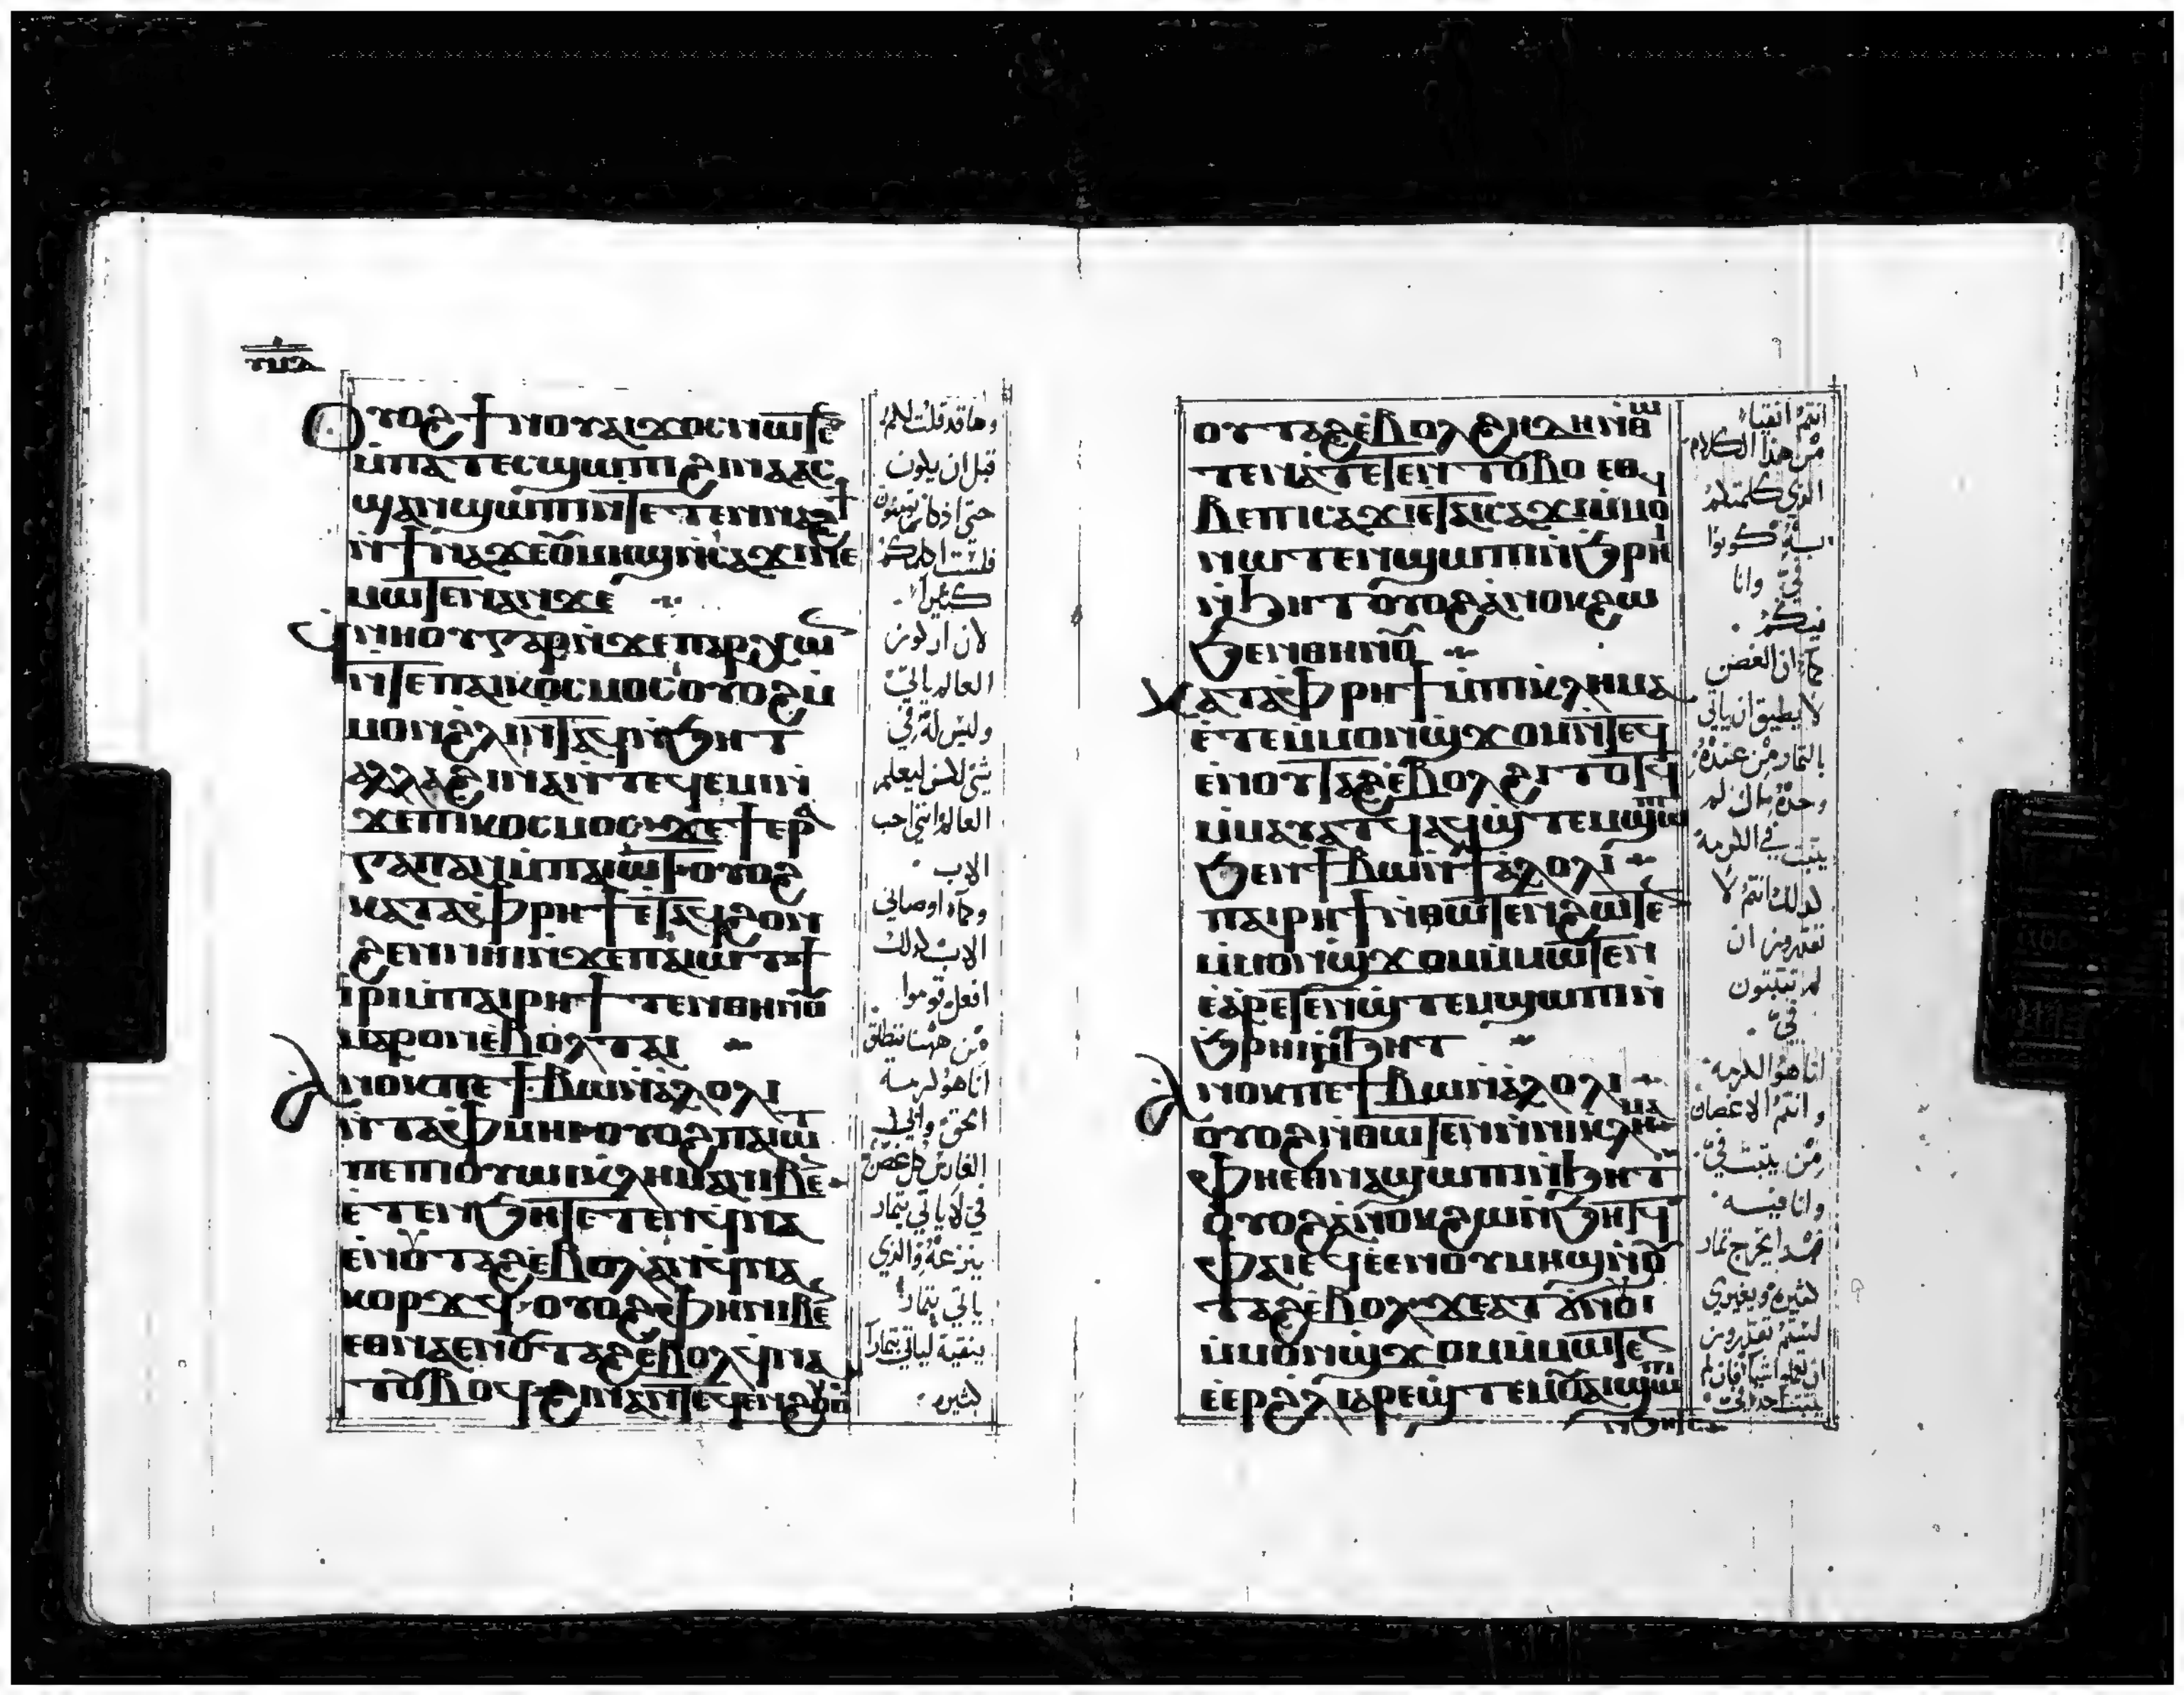 ⲟⲩⲟϩ ϯⲛⲟⲩ ⲁⲓϫⲟⲥ ⲛⲱⲧⲉ
ⲙⲡⲁⲧⲉⲥϣⲱⲡⲓ ϩⲓⲛⲁ ⲁⲥ
ϣⲁⲛϣⲱⲡⲓ ⲛⲧⲉⲧⲉⲛⲛⲁϩϯ
ⲛϯⲛⲁϫⲉ ⲟⲩⲙⲏϣ ⲛⲥⲁϫⲓ ⲛⲉ
ⲙⲱⲧⲉⲛ ⲁⲛ ϫⲉ
ϥⲛⲏⲟⲩ ⲅⲁⲣ ⲛϫⲉ ⲡⲁⲣⲭⲱ
ⲛⲧⲉ ⲡⲁⲓⲕⲟⲥⲙⲟⲥ ⲟⲩⲟϩ ⲙ
ⲙⲟⲛ ϩⲗⲓ ⲛⲧⲁϥ ⲛϧⲏⲧ
ⲁⲗⲗⲁ ϩⲓⲛⲁ ⲛⲧⲉϥⲉⲙⲓ ⲛ
ϫⲉ ⲡⲓⲕⲟⲥⲙⲟⲥ ϫⲉ ϯⲉⲣⲁ
ⲅⲁⲡⲁⲛ ⲙⲡⲁⲓⲱⲧ ⲟⲩⲟϩ
ⲕⲁⲧⲁ ⲫⲣⲏϯ ⲉⲧⲁϥϩⲟⲛ
ϩⲉⲛ ⲛⲏⲓ ⲛϫⲉ ⲡⲁⲓⲱⲧ ϯ
ⲓⲣⲓ ⲙⲡⲁⲓⲣⲏϯ ⲧⲉⲛⲑⲏⲛⲟⲩ
ⲙⲁⲣⲟⲛ ⲉⲃⲟⲗ ⲧⲁⲓ
ⲁⲛⲟⲕ ⲡⲉ ϯⲃⲱ ⲛⲁⲗⲟⲗⲓ
ⲛⲧⲁⲫⲙⲏⲓ ⲟⲩⲟϩ ⲡⲁⲓⲱⲧ
ⲡⲉ ⲡⲓⲟⲩⲱⲓ ⲕⲗⲏⲙⲁ ⲛⲓⲃⲉ
ⲉⲧⲉⲛϧⲏⲧ ⲉⲧⲉⲛϥⲛⲁ
ⲉⲛⲟⲩⲧⲁϩ ⲉⲃⲟⲗ ⲁⲛ ϥⲛⲁ
ⲕⲟⲣϫϥ ⲟⲩⲟϩ ⲫⲏ ⲛⲓⲃⲉ
ⲉⲑⲛⲁⲉⲛⲟⲩⲧⲁϩ ⲉⲃⲟⲗ ϥⲛⲁ
ⲧⲟⲩⲃⲟϥ ϩⲓⲛⲁ ⲛⲧⲉϥⲉⲛ ϩⲟⲩⲟ
وها قد قلت لكم
قبل ان يكون
حتى اذا كان تؤمنون
فلست اكلمكم
كثيراً
لان اركون
العالم ياتى
وليس له فى
شى لكن ليعلم
العالم اننى احب
الاب
وكما اوصانى
الاب كذلك
افعل قوموا
من ههنا ننطلق
انا هو الكرمة
الحق وابى
الفارس كل غصن
فى لا ياتى بثمار
ينزعه والذى
ياتى بثمار
ينقيه لياتى بثمار
كثيره
ⲟⲩⲧⲁϩ ⲉⲃⲟⲗ ϩⲏⲇⲏ ⲛⲑⲱ
ⲧⲉⲛ ⲁⲧⲉⲧⲉⲛⲧⲟⲩⲃⲟ ⲉⲑ
ⲃⲉ ⲡⲓⲥⲁϫⲓ ⲉⲧⲁⲓⲥⲁϫⲓ ⲙⲙⲟ
ⲛⲱⲧⲉⲛ ϣⲱⲡⲓ ⲛϧⲣⲏⲓ
ⲛϧⲏⲧ ⲟⲩⲟϩ ⲁⲛⲟⲕ ϩⲱ
ϧⲉⲛ ⲑⲏⲛⲟⲩ
ⲕⲁⲧⲁ ⲫⲣⲏϯ ⲙⲡⲓⲕⲗⲏⲙⲁ
ⲉⲧⲉ ⲙⲙⲟⲛ ϣϫⲟⲙ ⲛⲧⲉϥ
ⲉⲛⲟⲩⲧⲁϩ ⲉⲃⲟⲗ ϩⲓⲧⲟⲧϥ
ⲙⲙⲁⲩⲁⲧϥ ⲁϥϣⲧⲉⲙϣⲱⲡⲓ
ϧⲉⲛ ϯⲃⲱ ⲛⲁⲗⲟⲗⲓ
ⲡⲁⲓⲣⲏϯ ⲛⲑⲱⲧⲉⲛ ϩⲱⲧⲉ
ⲙⲙⲟⲛ ϣϫⲟⲙ ⲙⲙⲱⲧⲉⲛ
ⲉⲁⲣⲉⲧⲉⲛϣⲧⲉⲙϣⲱⲡⲓ ⲛ
ϧⲣⲏⲓ ⲛϧⲏⲧ
ⲁⲛⲟⲕ ⲡⲉ ϯⲃⲱ ⲛⲁⲗⲟⲗⲓ
ⲟⲩⲟϩ ⲛⲑⲱⲧⲉⲛ ⲛⲉ ⲛⲓⲕⲗⲏⲙⲁ
ⲫⲏ ⲉⲑⲛⲁϣⲱⲡⲓ ⲛϧⲏⲧ
ⲟⲩⲟϩ ⲁⲛⲟⲕ ϩⲱ ⲛϧⲏⲧϥ
ⲫⲁⲓ ⲉϥⲉⲉⲛ ⲟⲩⲙⲏϣ ⲛⲟⲩ
ⲧⲁϩ ⲉⲃⲟⲗ ϫⲉ ⲁⲧϭⲛⲟⲩⲓ
ⲙⲙⲟⲛ ϣϫⲟⲙ ⲙⲙⲱⲧⲉ
ⲉⲉⲣ ϩⲗⲓ ⲁⲣⲉϣⲧⲉⲙ ⲟⲩⲁⲓ ϣⲱⲡⲓ
ⲛϧⲏⲧ
انتم انقياء
من هذا الكلام
الذى كلمتكم
به كونوا
فىّ وانا
فيكم
كما ان الغصن
لا يطيق ان ياتى
بالثمار من عنده
وحده ان لم
يثبت فى الكرمة
كذلك انتم لا
تقدرون ان
لم تثبتون
فىّ
انا هو الكرمة
وانتم الاغصان
من يثبت فىّ
وانا فيه
هذا يخرج ثمار
كثيرة وبغيرى
لستم تقدرون
ان تعملوا شيا فان لم
يثبت احد فى